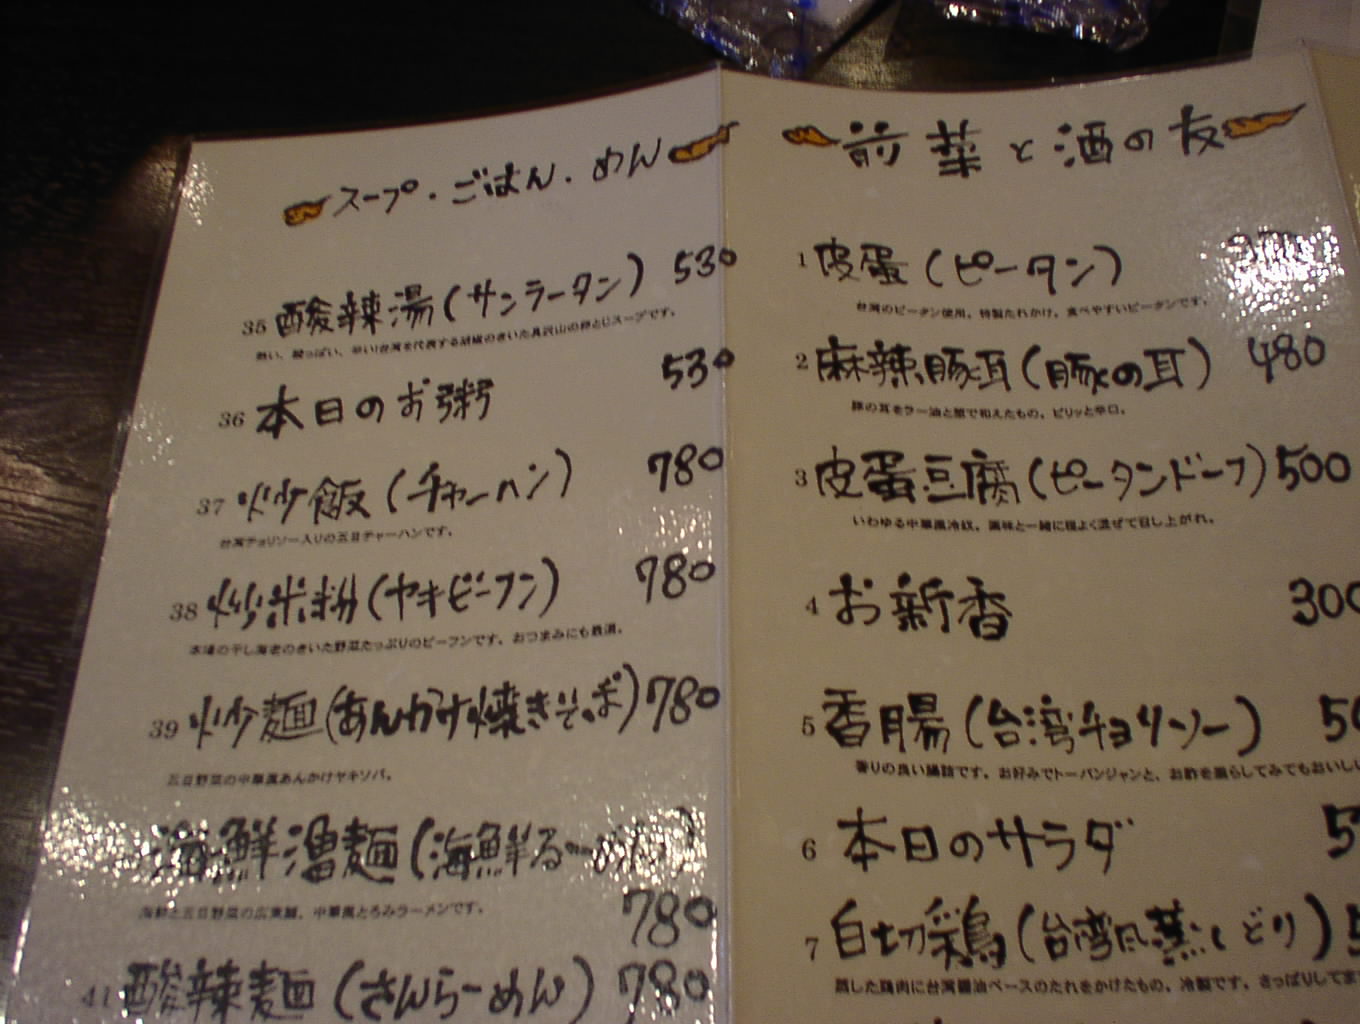 スープ・ごはん・めん
35 酸辣湯(サンラータン) 530
熱い、酸っぱい、辛い!台湾を代表する胡椒のきいた具沢山の卵とじスープです。
36 本日のお粥 530
37 炒飯(チャーハン) 780
台湾チョリソー入りの五目チャーハンです。
38 炒米粉(ヤキビーフン) 780
本場の干し海老のきいた野菜たっぷりのビーフンです。おつまみにも最適。
39 炒麺(あんかけ焼きそば) 780
五目野菜の中華風あんかけヤキソバ。
海鮮湯麺(海鮮る
海鮮と五目野菜の広東麺。中華風とろみラーメンです。
780
41 酸辣麺(さんらーめん) 780
前菜と酒の友
1 皮蛋(ピータン)
台湾のピータン使用。特製たれかけ。食べやすいピータンです。
2 麻辣豚耳(豚の耳) 480
豚の耳をラー油と葱で和えたもの。ピリッと辛口。
3 皮蛋豆腐(ピータンドーフ) 500
いわゆる中華風冷奴。薬味と一緒に程よく混ぜて召し上がれ。
4 お新香 300
5 香腸(台湾チョリソー) 5
香りの良い腸詰です。お好みでトーバンジャンと、お酢を垂らしてみてもおいし
6 本日のサラダ 5
7 白切鶏(台湾風蒸しどり) 5
蒸した鶏肉に台湾醤油ベースのたれをかけたもの。冷製です。さっぱりしてま